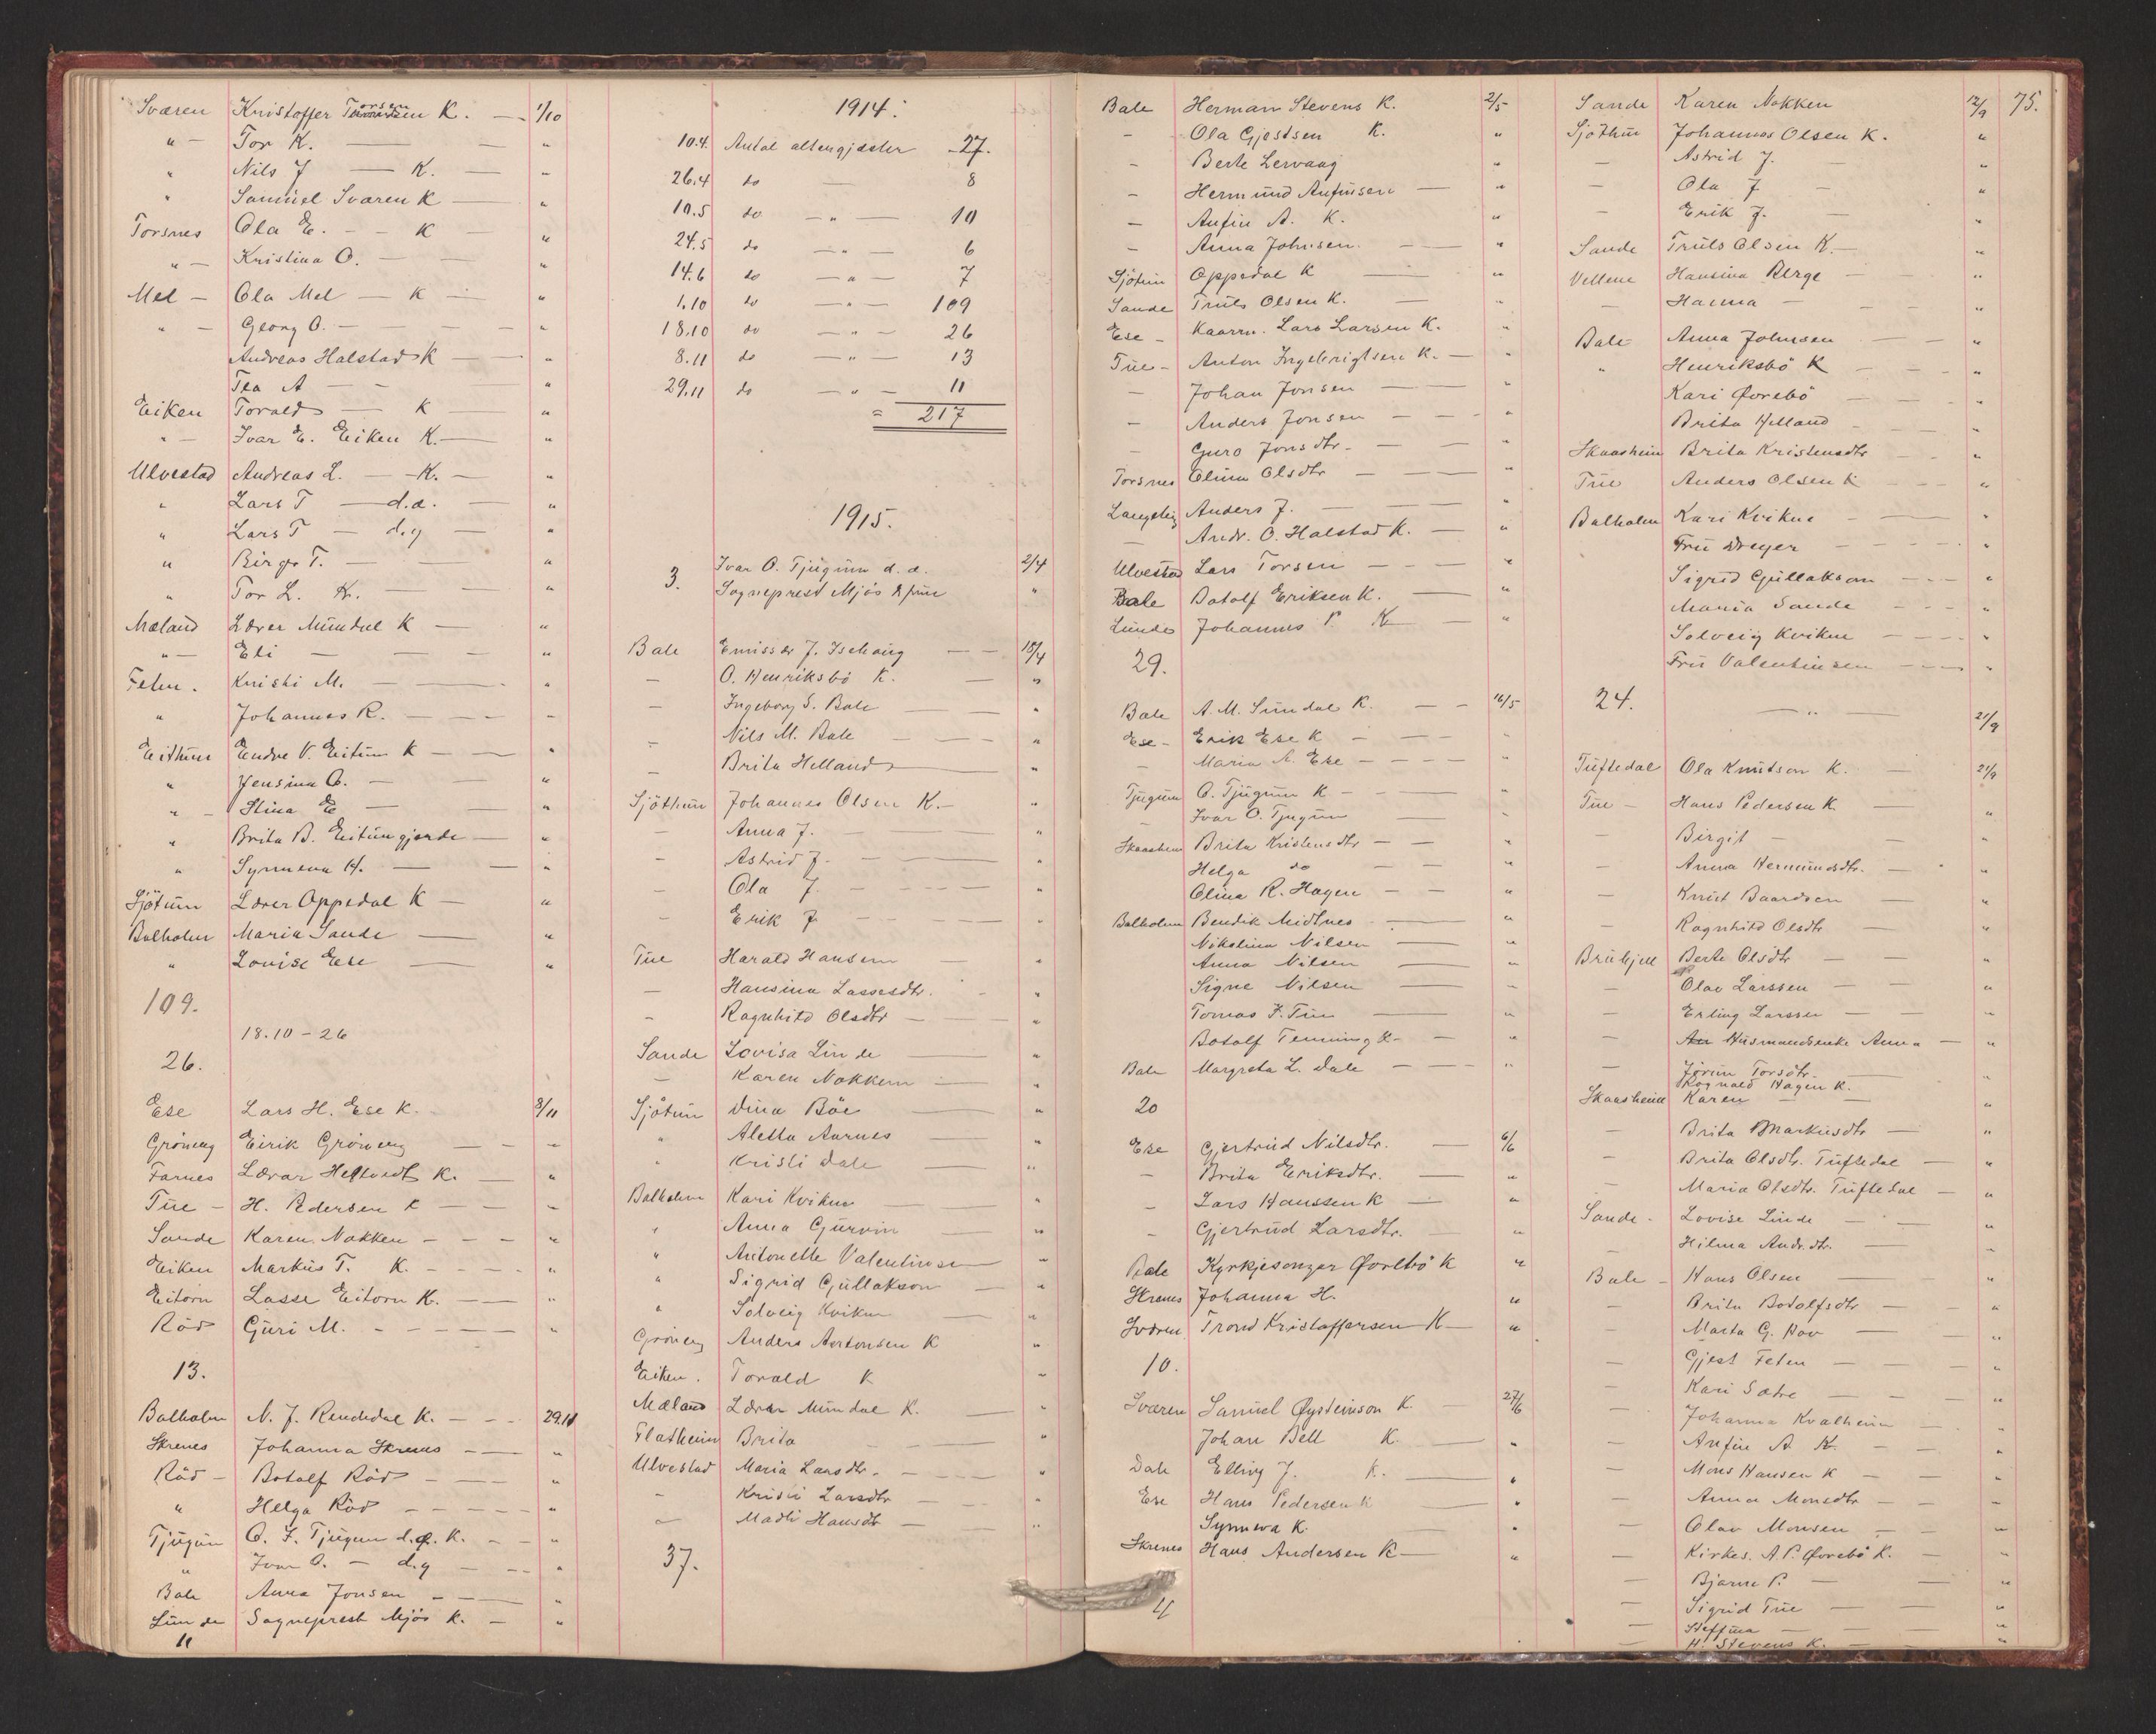 Sværen Kristoffer Torsen K. — 1/10
" — Tor K. — — "
" Nils J — K. — "
" Samuel Sværen K — "
Torsnes Ola E. — — K — "
" — Kristina O. — — "
Mel — Ola Mel — K — "
" — Georg O. — — — "
Andreas Halstad K — — "
Tea A — — "
Eiken Torald — K "
" — Ivar E. Eiken K. — "
Ulvestad Andreas L. — K. — "
" Lars T — d.e. — "
" Lars T — d.y — "
" Birger T. — — "
" Tor L. K. — — "
Mæland Lærer Mundal K — "
" — Eli — — — "
Fetn. Kristi M. — — "
" Johannes R. — — — "
Eithun Endre V. Eitun K — — "
" Jensina O. — — "
" — Stina E — — "
" Brita B. Eitungjerde — "
" Synneva H. — — "
Sjötun Lærer Oppedal K — "
Balholm Maria Sande — "
" Lovise Ese — "
109.
18.10 — 26
26.
Ese Lars H. Ese K. 8/11
Gröneng Eirik Gröneng — — "
Farnes Lærar Heltvedt K. — "
Tue — H. Pedersen K — — "
Sande Karen Nokken — — — "
Eiken Markus T. K. — — — "
Eitorn Lasse Eitorn K. — — "
Röd Guri M. — — — "
13.
Balholm N. J. Rendedal K. — — 29.11
Skrenes Johanna Skrenes — — "
Röd — Botolf Röd — — — "
" Helga Röd — — — "
Tjugun O. I. Tjugum d.e. K. — — "
" Ivar O. — d.y — — "
Bale Anna Jonsen — — "
Lunde Sogneprest Mjös K. — "
11
1914.
10.4. Antal altergjester — 27.
26.4 do — 8
10.5 do — " — 10
24.5 do — " — 6
14.6 do — " — 7
1.10 do — " — 109
18.10 do — " — 26
8.11 do — " — 13
29.11 do — " — 11
= 217
1915.
Ivar O. Tjugum d. e. 2/4
3. Sogneprest Mjös & frue "
Bale Emissær J. Ischoug — — 18/4
— O. Henriksbö K. — "
— Ingeborg S. Bale — — "
— Nils M. Bale — — — "
— Brita Helland — "
Sjöthun Johannes Olsen K. — "
— Anna J. — — "
— Astrid J. — — "
— Ola J. — — — "
— Erik J. — — — "
Tue Harald Hansen — "
— Hansina Lassesdtr. — "
— Ragnhild Olsdtr — — "
Sande Lovisa Linde — "
— Karen Nokken — "
Sjötun Dina Böe — "
" Aletta Aarnes — "
" Kristi Dale — "
Balholm Kari Kvikne — "
" Anna Gjurvin — "
" Antonette Valentinsen — "
" Sigrid Gjullakson — "
" Solveig Kvikne — "
Gröneng Anders Antonsen K "
Eiken. Torald K "
Mæland Lærer Mundal K. — "
Flatheim Brita — "
Ulvestad Maria Larsdtr. — — "
— Kristi Larsdtr — — "
— Madli Hansdtr — "
37.
Bale Herman Stevens K. 2/5
— Ola Gjestsen K. "
— Berte Lervaag "
— Hermund Anfinsen — "
— Anfin A. K. "
— Anna Johnsen. — — "
Sjötun Oppedal K — "
Sande Truls Olsen K. — "
Ese — Kaarm. Lars Larsen K. "
Tue — Anton Ingebrigtsen K. — "
— Johan Jonsen — — "
— Anders Jonsen — — — "
— Guro Jonsdtr. — — — "
Torsnes Olina Olsdtr — — — "
Anders J. — — — "
— Andr. O. Halstad K. — "
Ulvestad Lars Torsen — — — "
Bale Botolf Eriksen K. — "
Lunde Johannes P. K — "
29.
Bale A. M. Sundal K. — — 16/5
Ese — Erik Ese K — — — "
— Maria A. Ese — — — — "
Tjugum O. Tjugum K — — — "
— Ivar O. Tjugum — "
Skaasheim Brita Kristensdtr — — "
Helga do — — "
Olina R. Hagen — — "
Balholm Bendik Midtnes — "
Nikolina Nilsen — "
Anna Nilsen — "
Signe Nilsen — "
Tomas J. Tue — "
Botolf Tenning K — — "
Bale Margreta L. Dale — — — "
20
Ese Gjertrud Nilsdtr. — 6/6
— Brita Eriksdtr. — "
— Lars Hanssen K — "
— Gjertrud Larsdtr. — "
Bale Kyrkjesongar Øvrebö K "
Skrenes Johanna H. "
Sværen Trond Kristoffersen K — "
10.
Sværen Samuel Øysteinson K. 27/6
Johan Bell K. — "
Dale Elling J. K. — "
Ese Hans Pedersen K — "
Synneva K. "
Skrenes Hans Andersen K — "
Sande Karen Nokken 12/9 75.
Sjöthun Johannes Olsen K. "
— Astrid J. — "
— Ola J — "
— Erik J. — "
Sande Truls Olsen K. — "
Vellene Hansina Berge — — "
— Hanna — — "
Bale — Anna Johnsen — — "
" Henriksbö K — — — "
Kari Øvrebö — — — "
Brita Helland — — — "
Skaasheim Brita Kristensdtr — — "
Tue Anders Olsen K — — — "
Balholm Kari Kvikne — — "
Fru Dreyer — — — — "
Sigrid Gjullakson — — — "
Maria Sande — — — "
Solveig Kvikne — — — — "
Fru Valentinsen — — — "
24. — " — 21/9
Tuftedal Ola Knutson K. — 21/9
Tue — Hans Pedersen K. — "
— Birgit — — "
— Anna Hermundsdtr. — "
— Knut Baardsen — "
— Ragnhild Olsdtr — "
Berte Olsdtr — — "
— Olav Larssen — — "
— Erling Larssen — — "
— Husmandsenke Anna — "
— Jorun Torsdtr. — "
Rognald Hagen K.
Skaasheim Karen — — "
— Brita Markusdtr — "
— Brita Olsdtr. Tuftedal — "
— Maria Olsdtr. Tuftedal — "
Sande — Lovise Linde — — "
— Hilma Andr.dtr. — — "
Bale — Hans Olsen — "
— Brita Botolfsdtr — — "
Marta G. Hov — — "
— Gjest Feten — — — "
— Kari Sætre — — — "
— Johanna Kvalheim — "
— Anfin A. K. — — "
— Mons Hansen K — — "
— Anna Monsdtr — — "
— Olav Monsen — — "
— Kirkes. A. P. Øvrebö K. — "
— Bjarne P. — — "
— Sigrid Tue — — "
— Steffina — — — "
— H. Stevens K. — — "